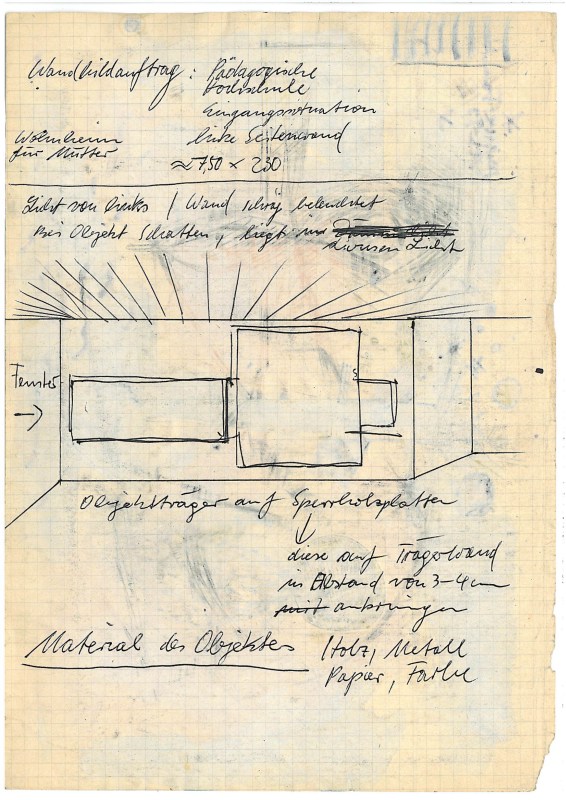 Wandbildauftrag: Pädagogische
Hochschule
Eingangssituation
Wohnheim für Mütter
linke Seitenwand
≈ 750 × 230
Licht von links / Wand schräg beleuchtet
Bei Objekt Schatten, liegt im
diffusen Licht
Fenster
Objektträger auf Sperrholzplatten
diese auf Trägerwand
im Abstand von 3-4 cm
mit anbringen
Material des Objektes
Holz, Metall
Papier, Farbe